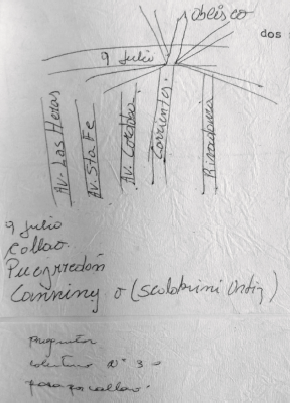 obelisco
dos
9 Julio
Av. Las Heras
Av. Sta Fe
Av. Cordoba
Corrientes.
Rivadavia
9 Julio
Collao.
Pueyrredón
Canning o (Scalabrini Ortiz)
preguntar
colectivo N° 3
pasa por callao.